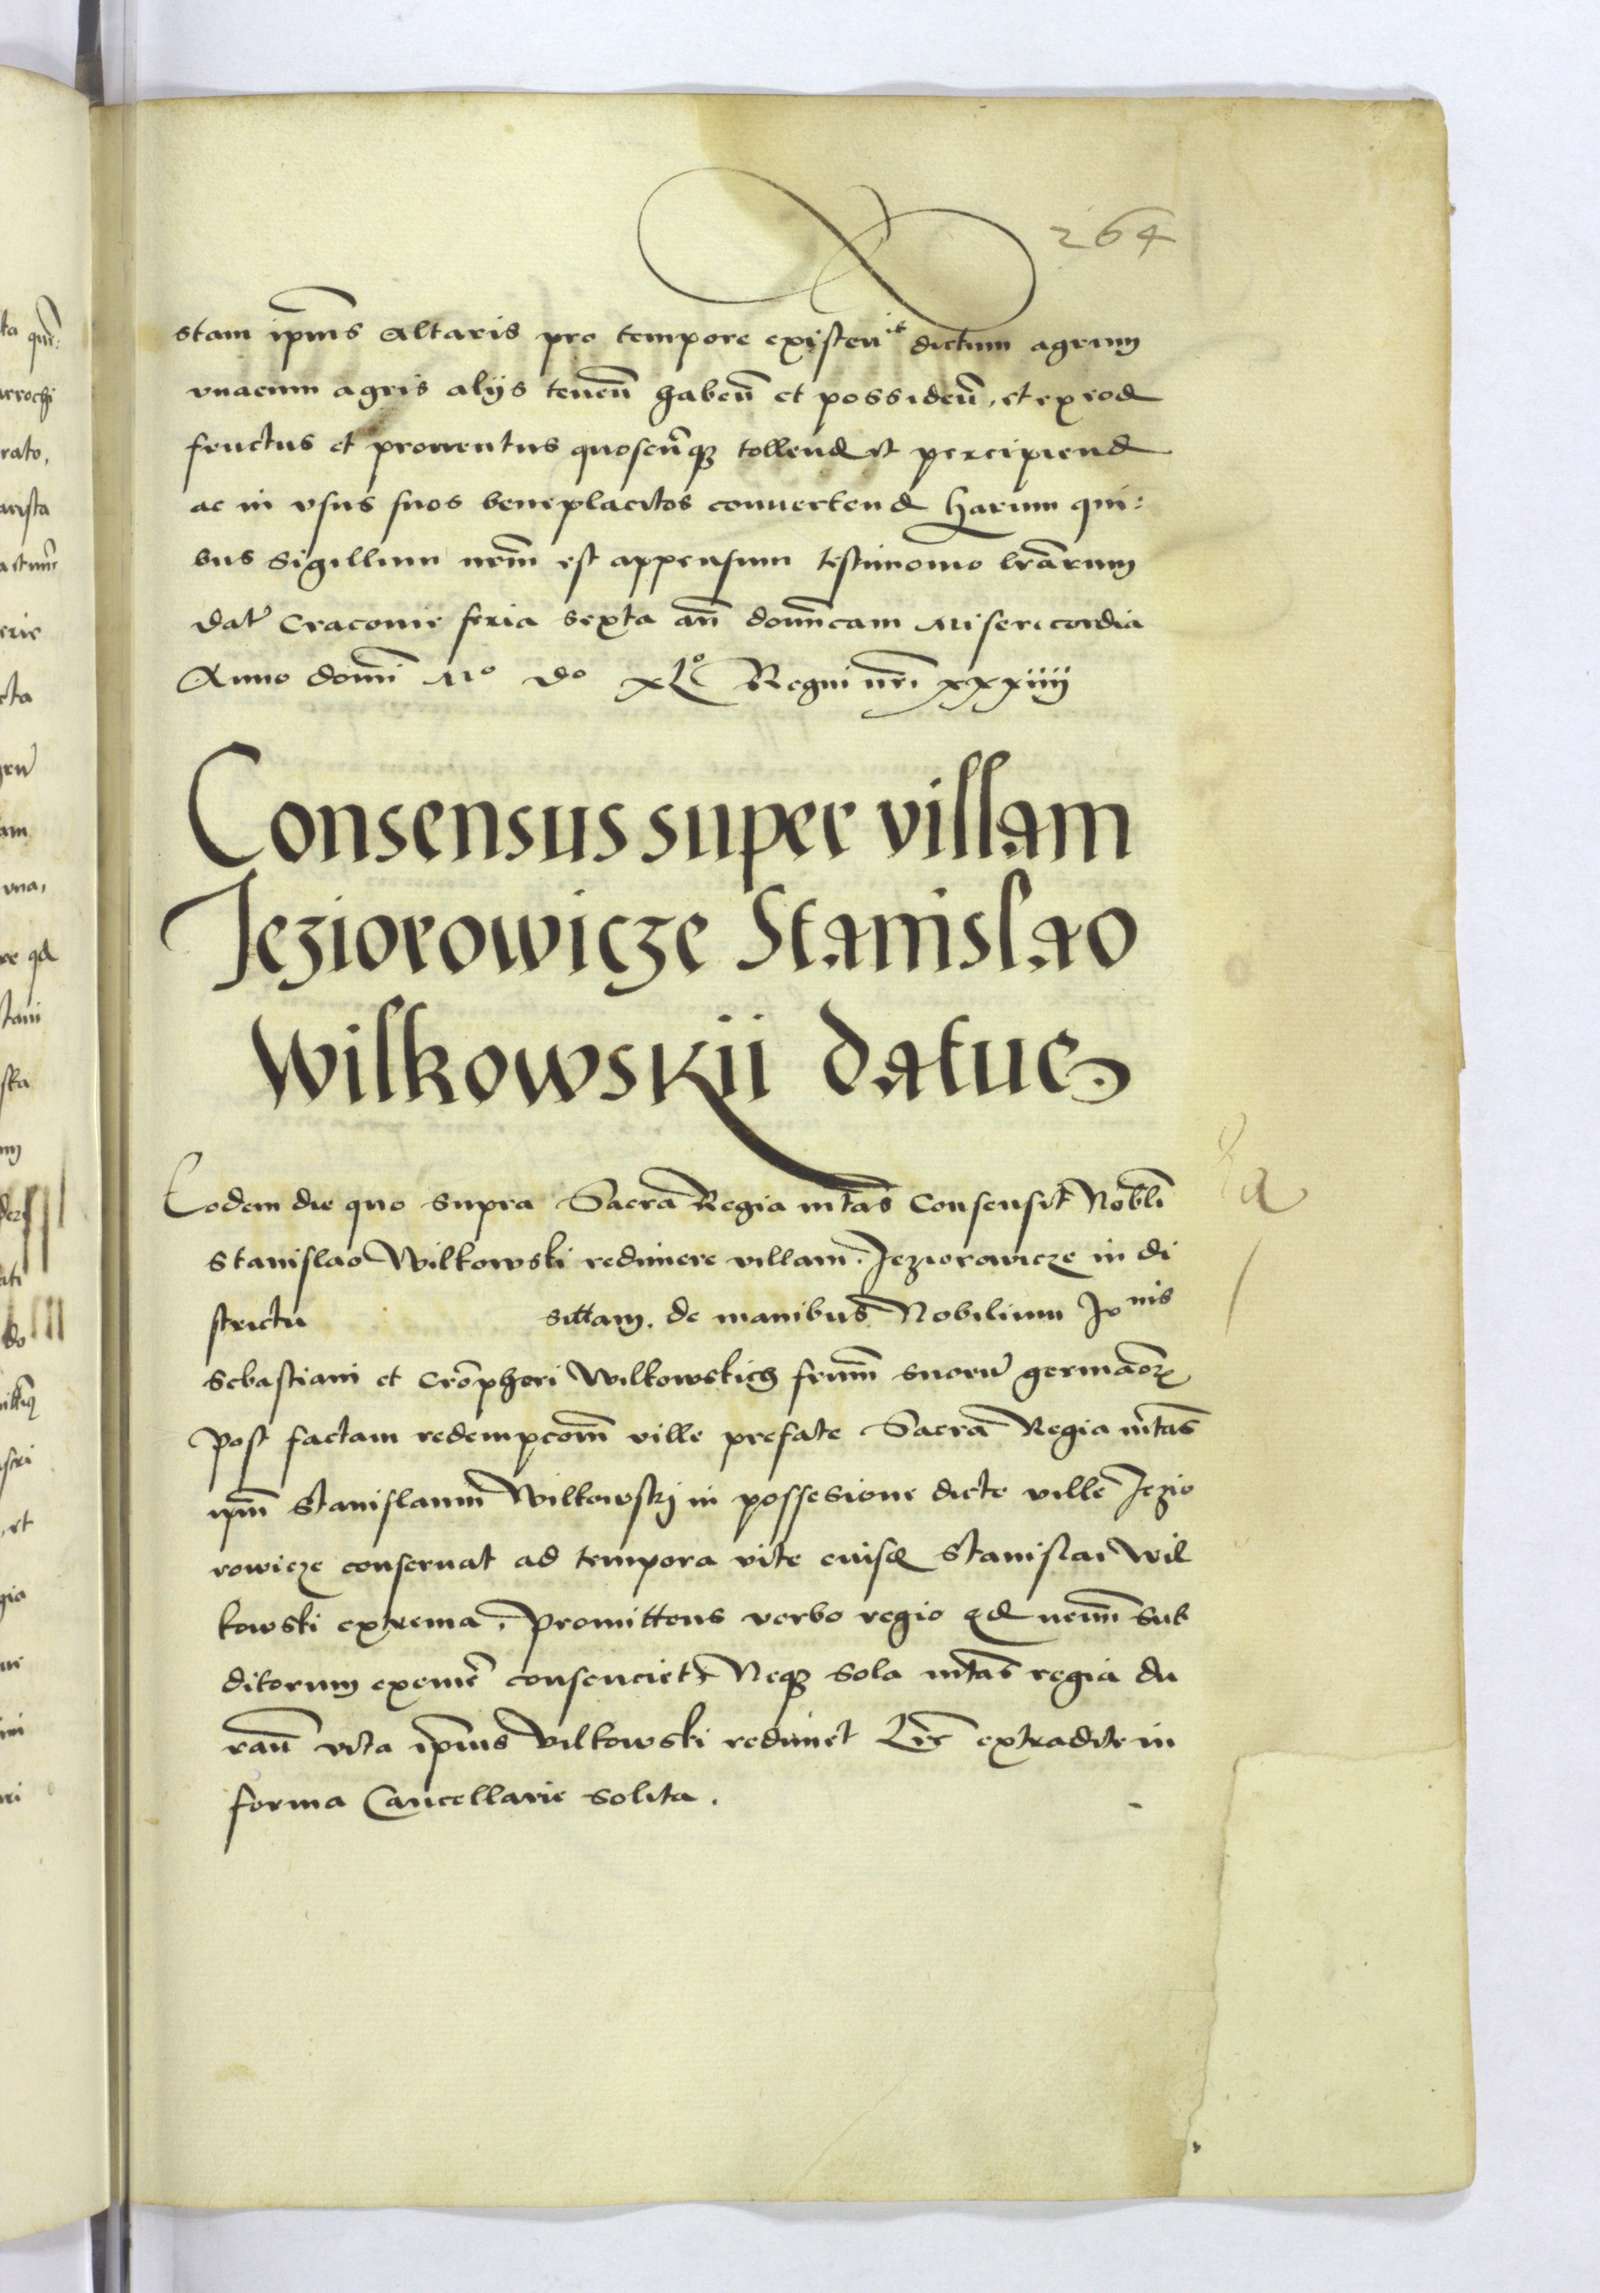 264
stam ipīus Altaris pro tempore existen̄ it dictum agrum
vnacum agris alijs tenen̄ haben̄ et possiden̄, et ex eod
fructus et prouentus quoscūqꝫ tollend et percipiend
ac in vsus suos beneplacitos conuertend Harum qui:
bus Sigillum nr̄m est appensum testimonio lrārum
Dat̄ Cracouie feria sexta an̄ domīcam Misericordia
Anno domī Mo Do xLo Regni nrī xxxiiii
Consensus super villam
Jeziorowicze Stanislao
Wilkowskii datur
Eodem die quo supra Sacra Regia mtās Consensit Nobli
Stanislao Wilkowski redimere villam Jeziorowicze in di
strictu sittam. de manibus Nobilium Jo nis
Sebastiani et Crōpheri Wilkowskich frum̄ suorū germāoꝝ
Post factam redempcom̄ ville prefate Sacra Regia mtās
ipm̄ Stanislaum Wilkowskj in possesione dicte ville Jezio
rowicze conseruat ad tempora vite euisꝫ Stanislai Wil
kowski extrema, Promittens verbo regio qd nemī sub
ditorum eximerē consenciet, Neqꝫ sola mtās regia du
ran̄ vita ipīus Vilkowski redimet Lrē extradite in
forma Cancellarie solita.